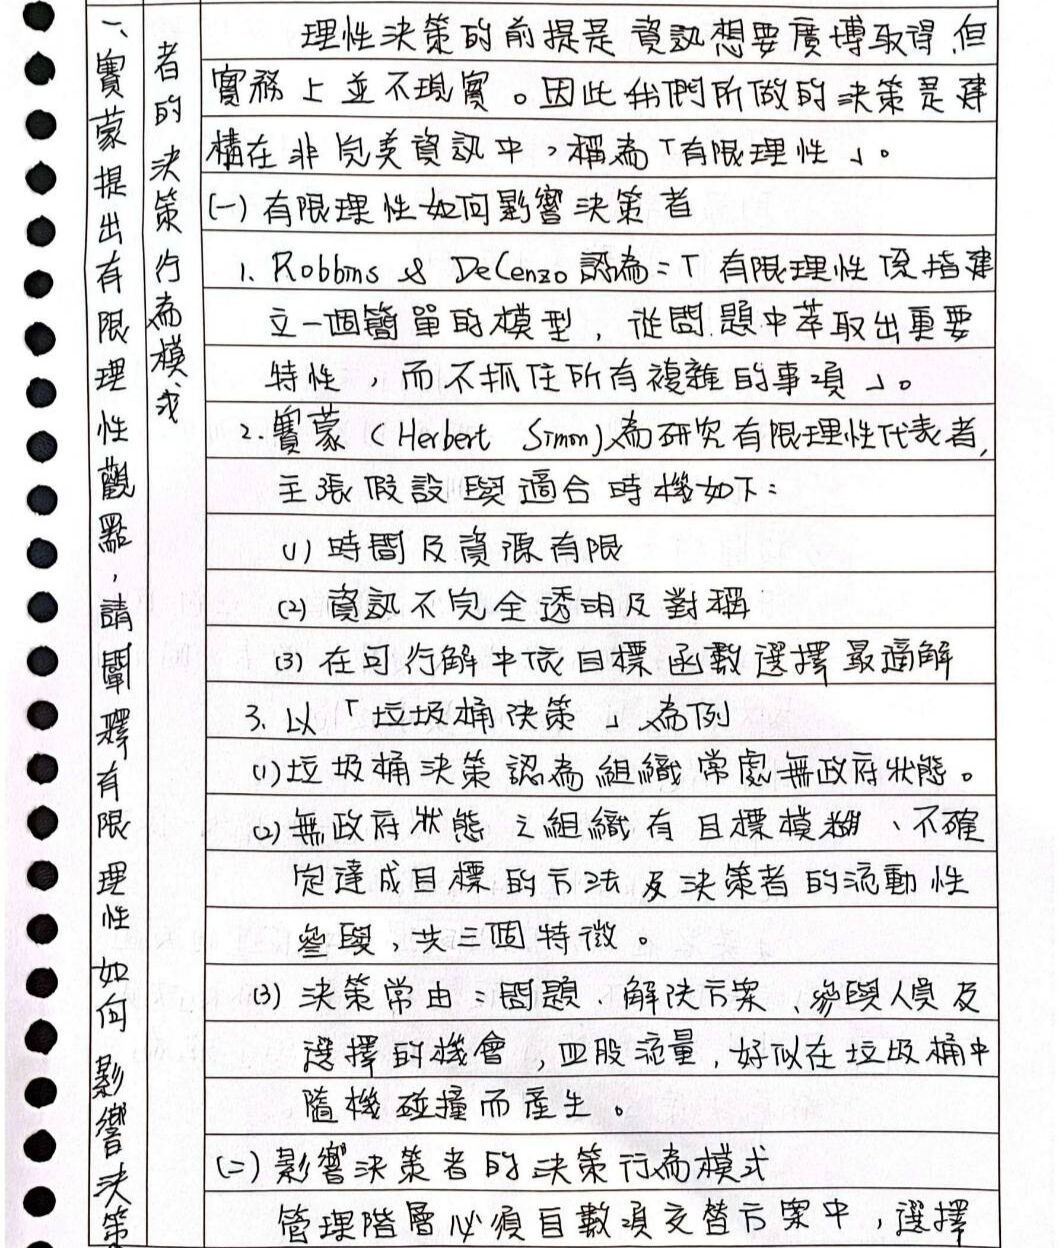 一、賽蒙提出有限理性觀點，請闡釋有限理性如何影響決策
者的決策行為模式
理性決策的前提是資訊想要廣博取得，但
實務上並不現實。因此我們所做的決策是建
構在非完美資訊中，稱為「有限理性」。
(一) 有限理性如何影響決策者
1. Robbins & DeCenzo 認為：「有限理性係指建
立一個簡單的模型，從問題中萃取出重要
特性，而不抓住所有複雜的事項」。
2. 賽蒙 (Herbert Simon) 為研究有限理性代表者，
主張假設與適合時機如下：
(1) 時間及資源有限
(2) 資訊不完全透明及對稱
(3) 在可行解中依目標函數選擇最適解
3. 以「垃圾桶決策」為例
(1) 垃圾桶決策認為組織常處無政府狀態。
(2) 無政府狀態之組織有目標模糊、不確
定達成目標的方法及決策者的流動性
參與，共三個特徵。
(3) 決策常由：問題、解決方案、參與人員及
選擇的機會，四股流量，好似在垃圾桶中
隨機碰撞而產生。
(二) 影響決策者的決策行為模式
管理階層必須自數項交替方案中，選擇